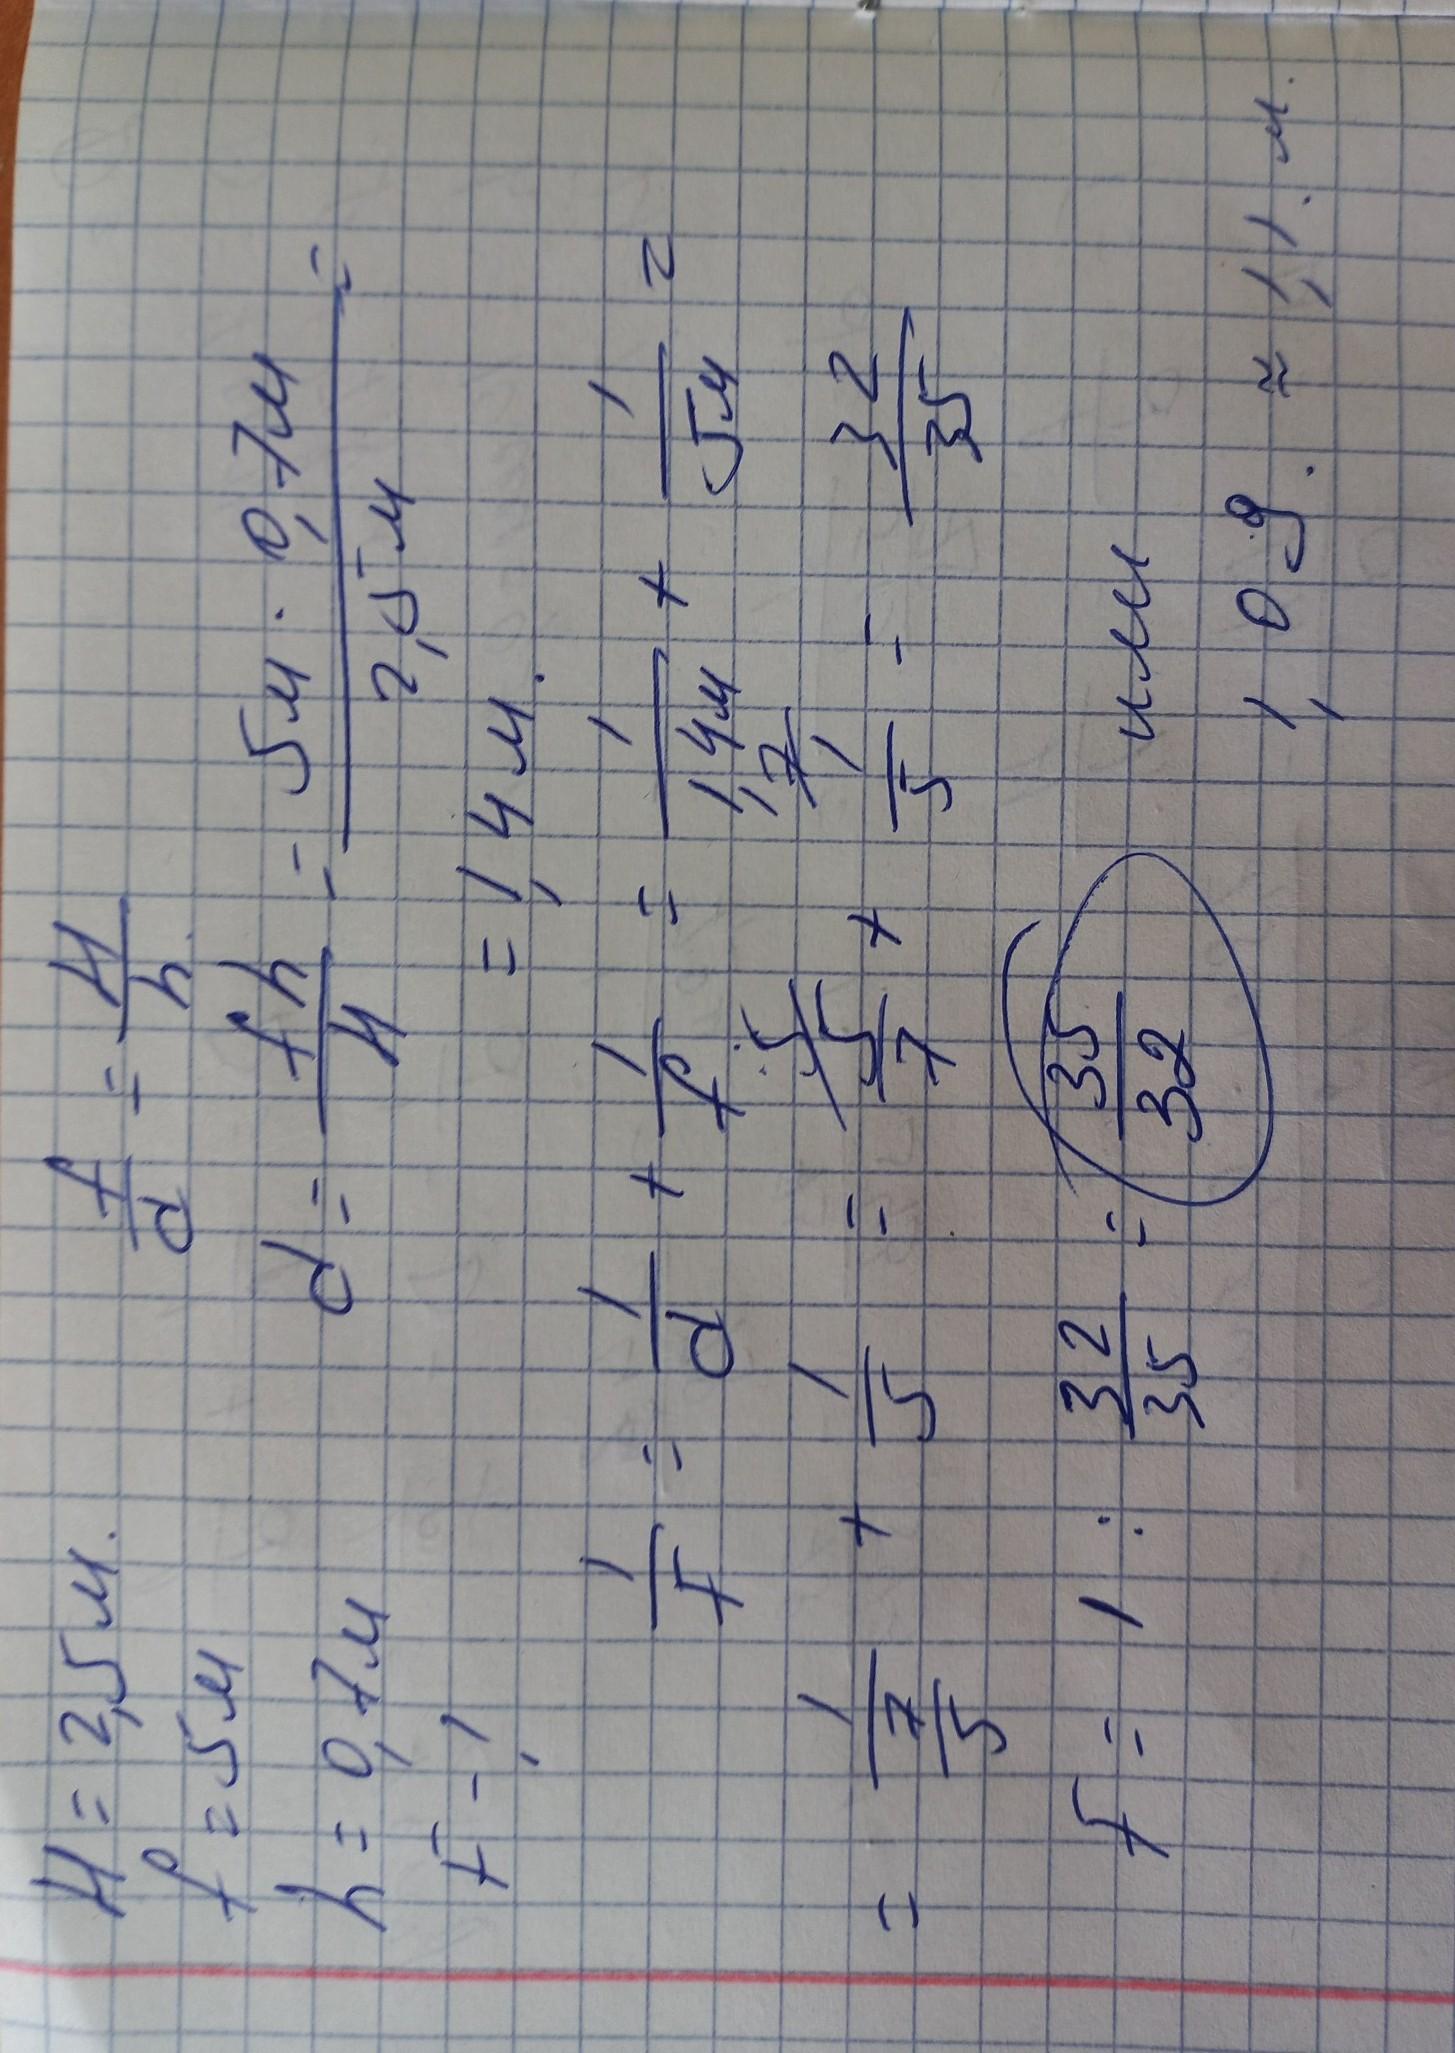 H = 2,5м. f/d = H/h
f = 5м d = fh/H = 5м · 0,7м / 2,5м =
h = 0,7м = 1,4м.
F - ,
1/F = 1/d + 1/f = 1/1,4м + 1/5м =
= 1/(7/5) + 1/5 = 5/7 + 1/5 = 32/35
F = 1 : 32/35 = 35/32 или
1,09. ≈ 1,1. м.